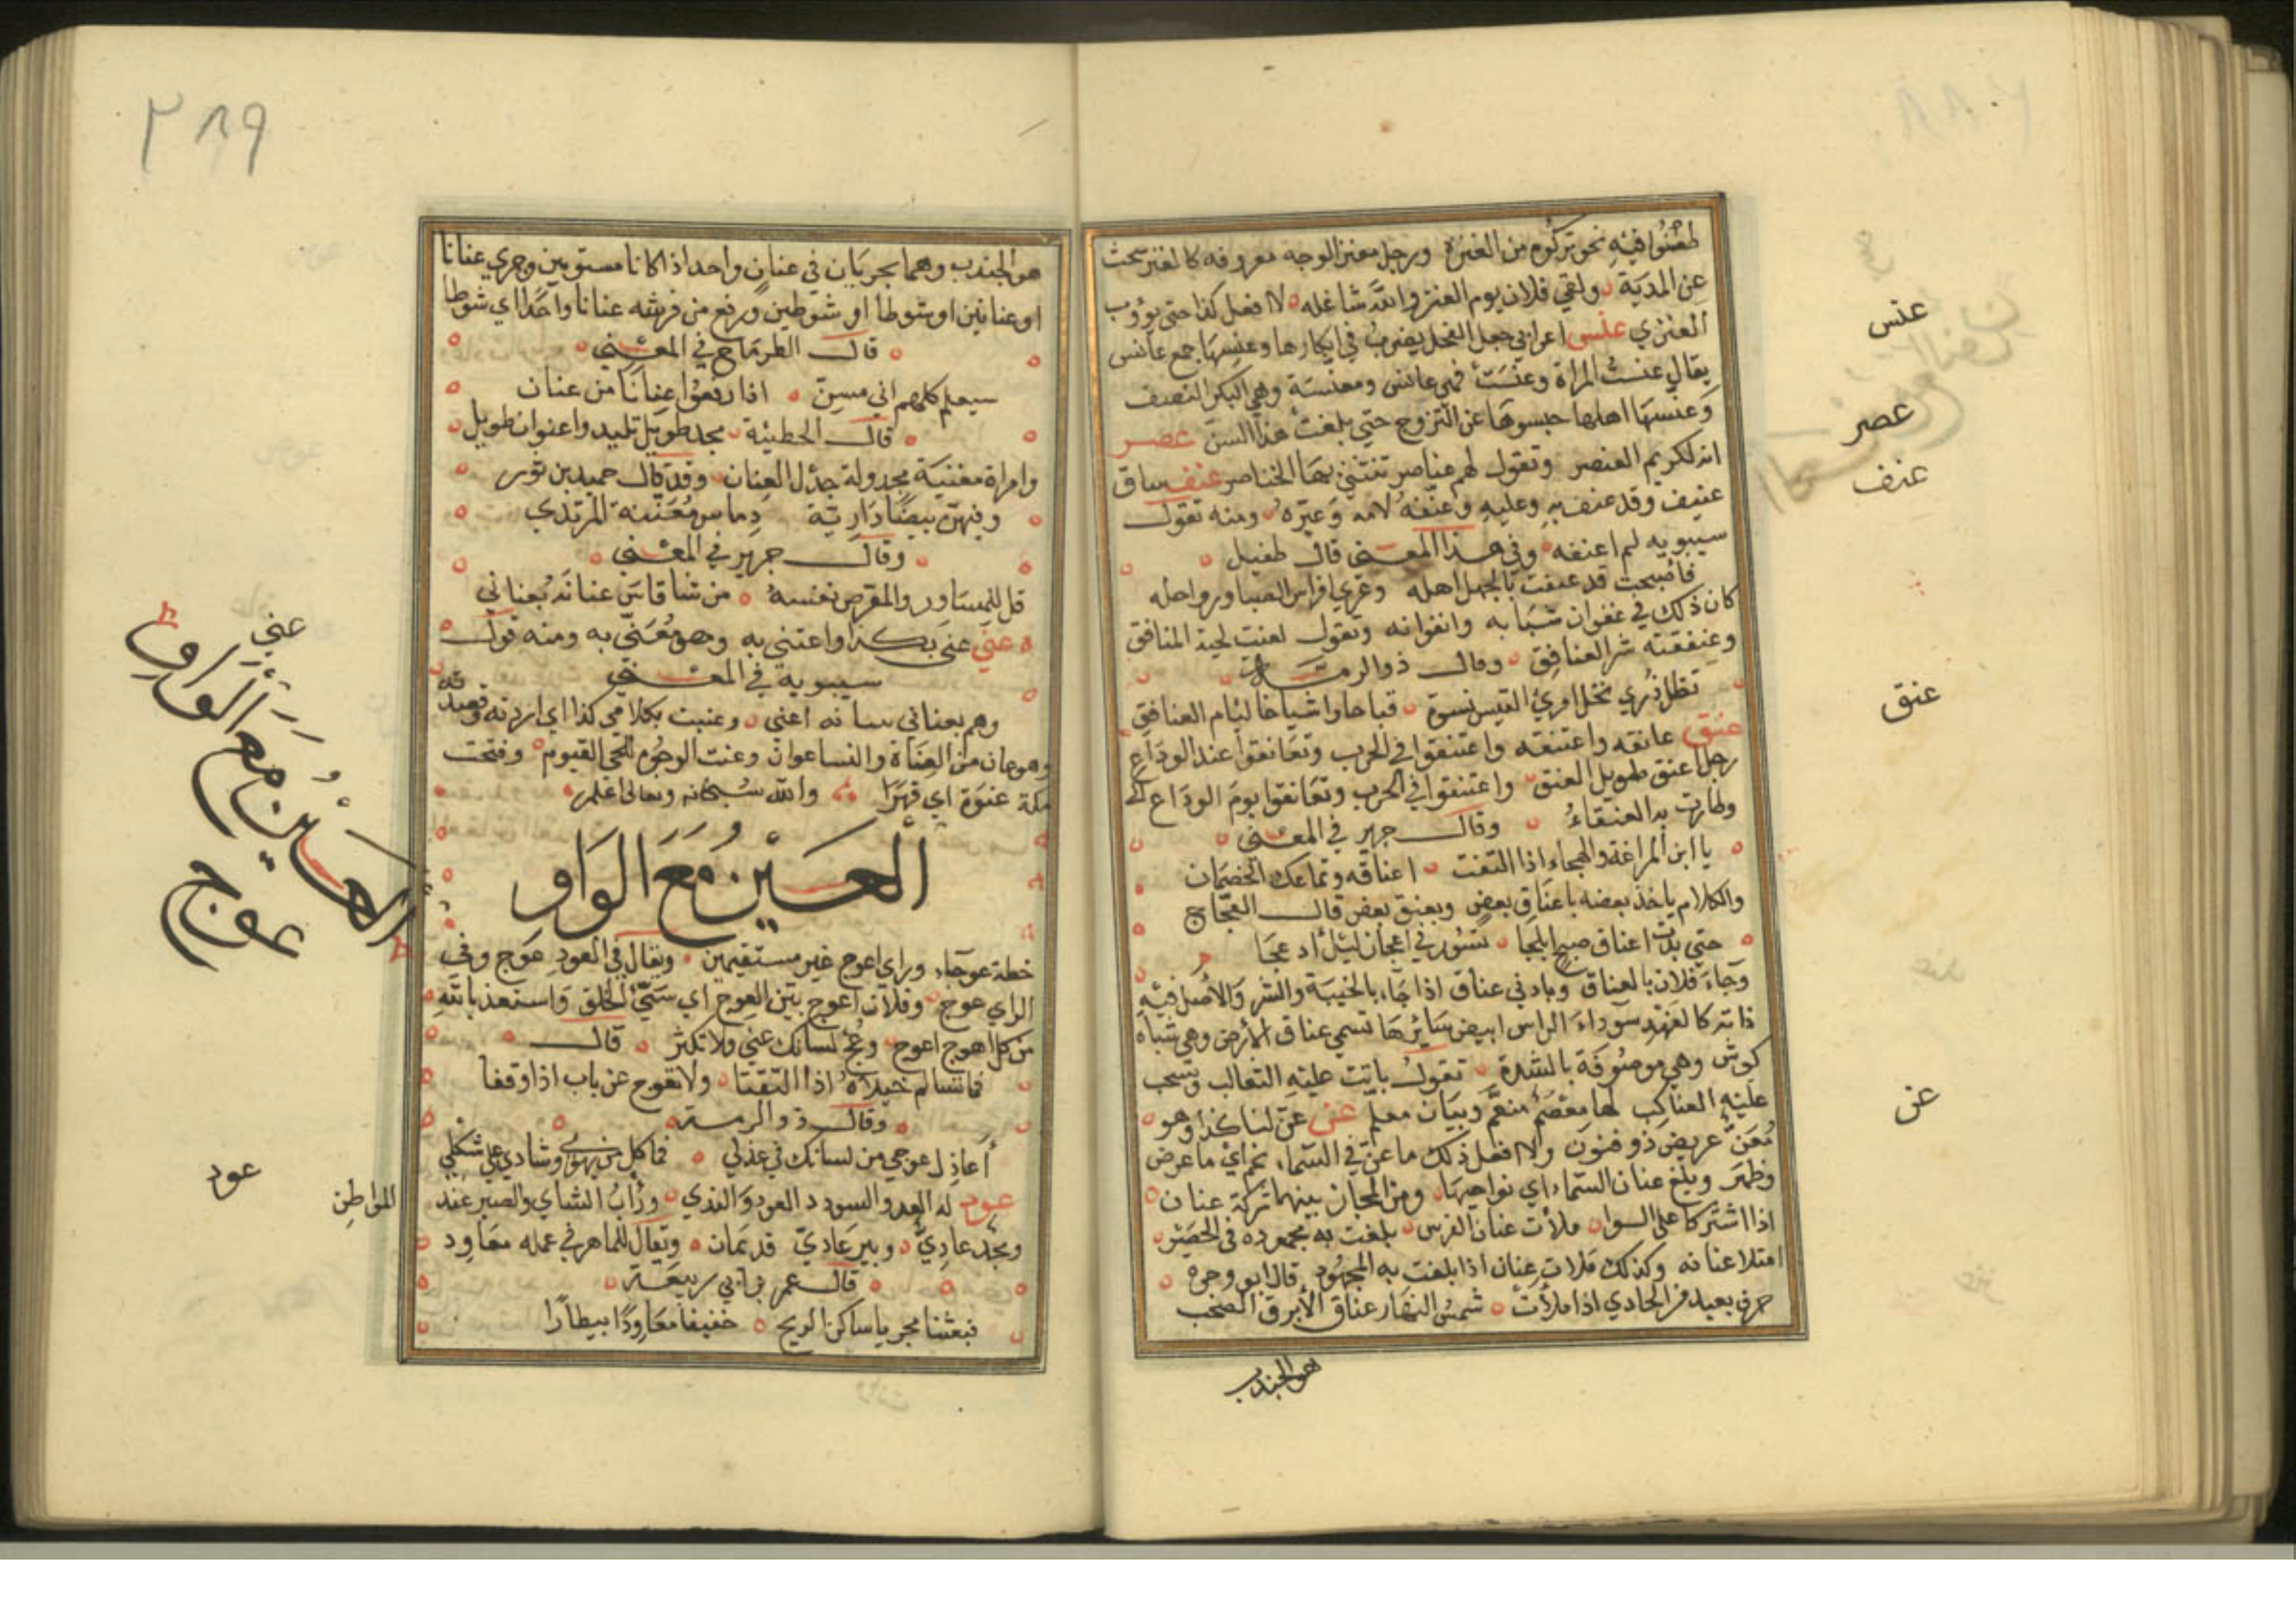 طعنوا فيه نحو تركوم من العنزة ورجل معنز الوجه معروفه كالعنز تبحث
عن المدية ولقي فلان يوم العنز والله شاغله لا افعل كذا حتى يؤوب
العنزي عنس اعرابي جعل الفحل يضرب في ابكارها وعنسها جمع عانس
يقال عنست المراة وعنست فهي عانس ومعنسة وهي البكر النصف
وعنسها اهلها حبسوها عن التزوج حتى بلغت هذا السن عصر
انه لكريم العنصر وتقول لهم عناصر تنثني بها الخناصر عنف ساق
عنيف وقد عنف به وعليه وعنفه لامه وعيره ومنه تقول
سيبويه لم اعنفه وفي هذا المعنى قال طفيل
فأصبحت قد عنفت بالجهل اهله وعري افراس الصبا ورواحله
كان ذلك في عنفوان شبابه وانفوانه وتقول لعنت لحية المنافق
وعنفقته شر العنافق وقال ذو الرمة
تظل ذرى نخل امرئ القيس نسوة قباحا واشياخا لئام العنافق
عنق عانقه واعتنقه واعتنقوا في الحرب وتعانقوا عند الوداع
رجل اعنق طويل العنق واعتنقوا في الحرب وتعانقوا يوم الوداع
وطارت به العنقاء وقال جرير في المعنى
يا ابن المراغة والهجاء اذا التقت اعناقه وتماعك الخصمان
والكلام ياخذ بعضه باعناق بعض وبعنق بعض قال العجاج
حتى بدت اعناق صبح ابلجا تسور في اعجاز ليل ادعجا
وجاء فلان بالعناق وباد في عناق اذا جاء بالخيبة والشر والاصل فيه
دابة كالفهد سوداء الراس ابيض سائرها تسمى عناق الارض وهي شباه
كوش وهي موصوفة بالشدة تقول باتت عليه الثعالب وتسحب
عليه العناكب لها معصم منعم وبنان معلم عن عن لنا كذا وهو
معن عريض ذو فنون ولا افعل ذلك ما عن في السماء نجم اي ما عرض
وظهر وبلغ عنان السماء اي نواحيها ومن المجاز بينهما شركة عنان
اذا اشتركا على السوا ملأت عنان الفرس بلغت به مجهوده في الحضر
امتلا عنانه وكذلك ملات عنان اذا بلغت به المجهود قال ابو وجزة
حرف بعيد من الحادي اذا ملأت شمس النهار عناق الأبرق الصخب
هو الجندب
عنس
عصر
عنف
عنق
عن
٣٨٩
هو الجندب وهما يجريان في عنان واحد اذا كانا مستويين وجرى عنانا
او عنانين او شوطا او شوطين ورفع من فرسه عنانا واحدا اي شوطا
قال الطرماح في المعنى
سيعلم كلهم اني مسن اذا رفعوا عنانا من عنان
قال الحطيئة مجد طويل تليد واعنوان طويل
وامراة معننة مجدولة جدل العنان وقد قال حميد بن ثور
وفيهن بيضا دارية دهاس معننة المرتدي
وقال جرير في المعنى
قل للمساور والمقرض نفسه من شا قاس عنانه بعناني
عني عني بكذا واعتنى به وهو معنى به ومنه قول
سيبوية في المعنى
وهم بعناني ببيانه اعني وعنيت بكلامي كذا اي اردته وقصدته
وهو عان من العناة والنسا عوان وعنت الوجوه للحي القيوم وفتحت
مكة عنوة اي قهرا والله سبحانه وتعالى اعلم
العين مع الواو
خطة عوجاء وراي اعوج غير مستقيمين ويقال في العود عوج وفي
الراي عوج وفلان اعوج بين العوج اي سيئ الخلق واستعذ بالله
من كل اهوج اعوج وعج لسانك عني ولا تكثر قال
فما تسالم خيلاه اذا التقتا ولا تعوج عن باب اذا وقفا
وقال ذو الرمة
أعاذل عوجي من لسانك في عذلي فما كل من يهوى وشادي على شكلي
عود له العد والسودد العود والندى ورأب الشاي والصبر عند
المواطن
ومجد عادي وبير عادي قديمان وتقال للماهر في عمله معاود
قال عمر بن ابي ربيعة
فبعثنا مجربا ساكن الريح خفيفا معاودا بيطارا
عني
العين مع الواو
عوج
عود